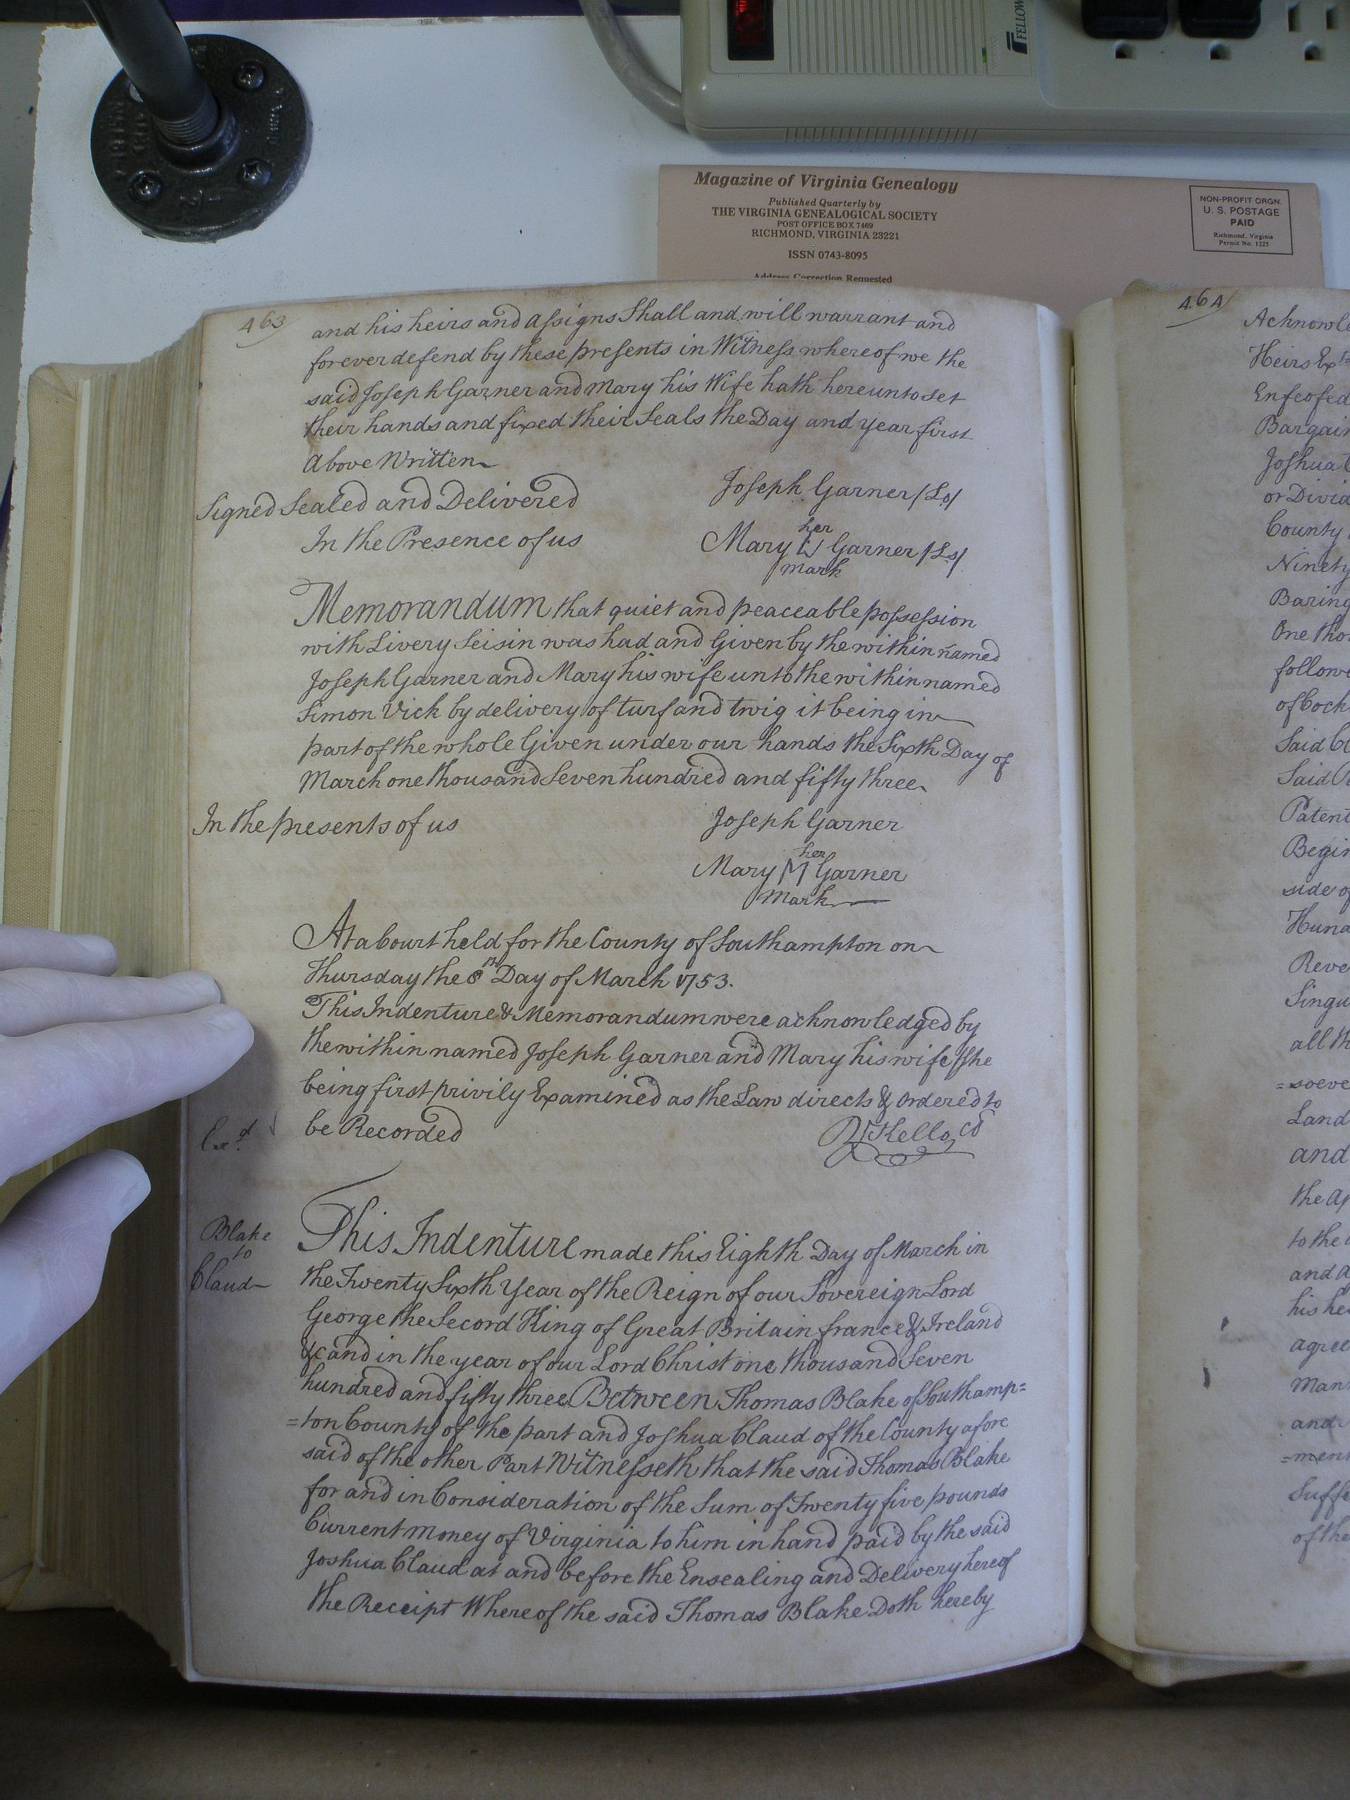 FELLOW
Magazine of Virginia Genealogy
Published Quarterly by
THE VIRGINIA GENEALOGICAL SOCIETY
POST OFFICE BOX 7469
RICHMOND, VIRGINIA 23221
ISSN 0743-8095
Address Correction Requested
NON-PROFIT ORGN.
U. S. POSTAGE
PAID
Richmond, Virginia
Permit No. 1225
463
and his heirs and assigns Shall and will warrant and
forever defend by these presents in Witness whereof we the
said Joseph Garner and Mary his Wife hath hereunto set
their hands and fixed their Seals the Day and year first
Above Written
Signed Sealed and Delivered
In the Presence of us
Joseph Garner /Ls/
her
Mary Garner /Ls/
mark
Memorandum that quiet and peaceable possession
with Livery Seisin was had and Given by the within named
Joseph Garner and Mary his wife unto the within named
Simon Vick by delivery of turf and twig it being in
part of the whole Given under our hands the Sixth Day of
March one thousand Seven hundred and fifty three
In the presents of us
Joseph Garner
her
Mary M Garner
Mark
At a Court held for the County of Southampton on
Thursday the 8th Day of March 1753.
This Indenture & Memorandum were acknowledged by
the within named Joseph Garner and Mary his wife she
being first privily Examined as the Law directs & ordered to
be Recorded
Exd
Blake
to
Claud
This Indenture made this Eighth Day of March in
the Twenty Sixth Year of the Reign of our Sovereign Lord
George the Second King of Great Britain france & Ireland
&c and in the year of our Lord Christ one thousand Seven
hundred and fifty three Between Thomas Blake of Southamp=
=ton County of the part and Joshua Claud of the County afore
said of the other Part Witnesseth that the said Thomas Blake
for and in Consideration of the Sum of Twenty five pounds
Current money of Virginia to him in hand paid by the said
Joshua Claud at and before the Ensealing and Delivery hereof
the Receipt Whereof the said Thomas Blake Doth hereby
464
Heirs
Enfeofed
Joshua
County
Ninety
follow
Said
Said
side of
all th
=soeve
Land
and
to the
his he
agree
and
of the